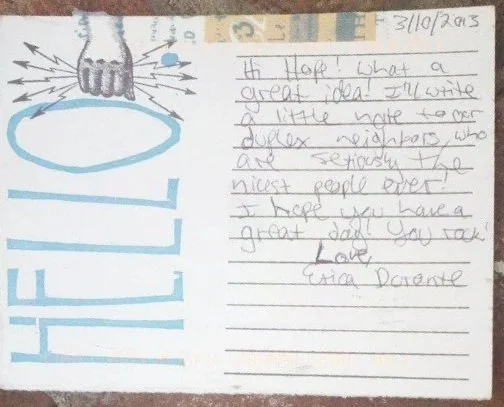 3/10/2013
Hi Hope! What a
great idea! I'll write
a little note to our
duplex neighbors, who
are seriously the
nicest people ever!
I hope you have a
great day! You rock!
Love,
Erica Dorante
HELLO